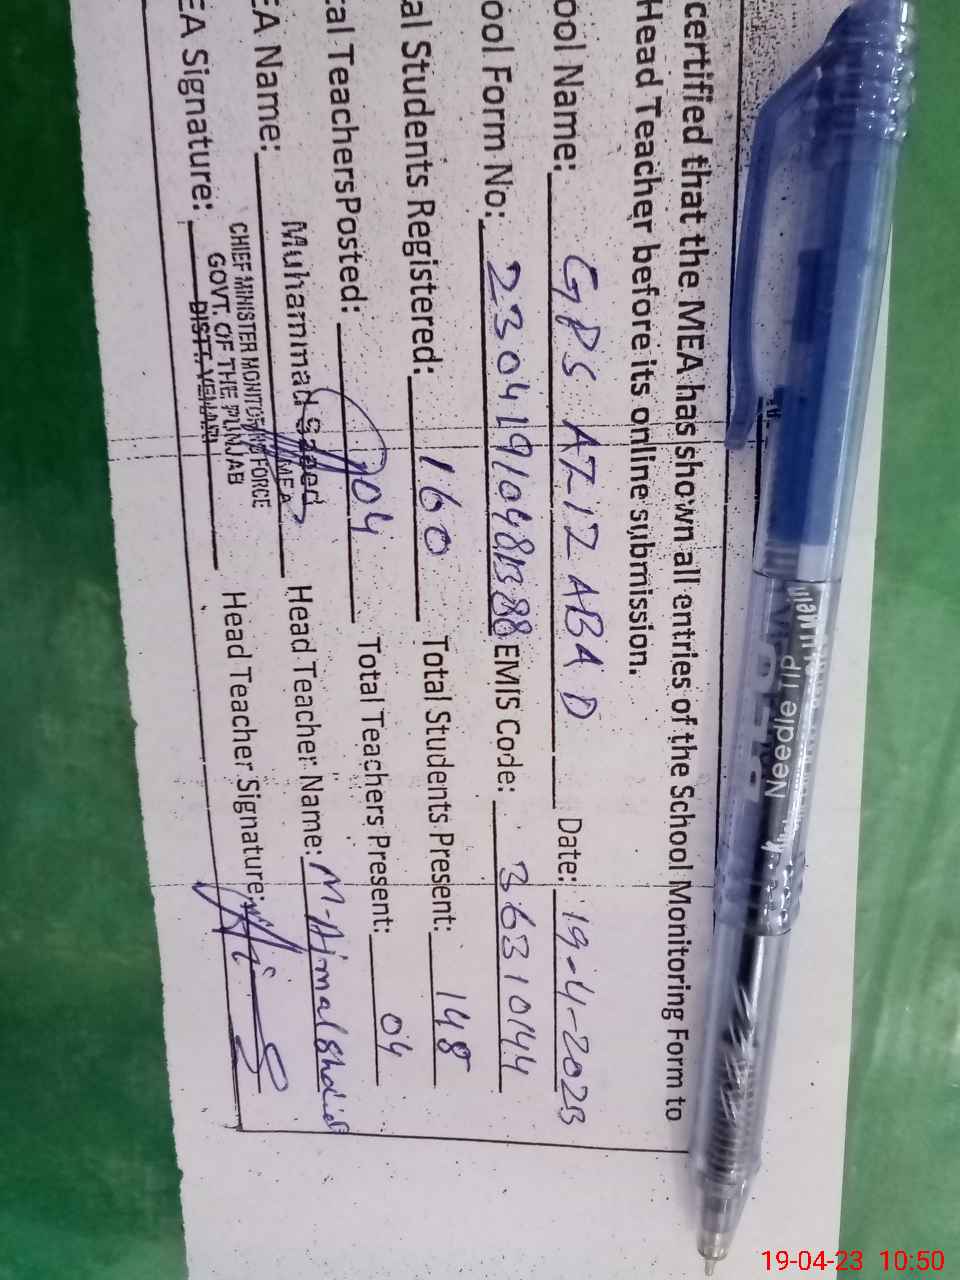 certified that the MEA has shown all entries of the School Monitoring Form to
Head Teacher before its online submission.
ool Name: GPS AZIZ ABAD Date: 19-4-2023
ool Form No: EMIS Code: 36310144
al Students Registered: 160 Total Students Present: 148
tal TeachersPosted: 04 Total Teachers Present: 04
EA Name: Muhammad Saeed Head Teacher Name: M-Ajmal Shahid
MEA
EA Signature: Head Teacher Signature:
CHIEF MINISTER MONITORING FORCE
GOVT. OF THE PUNJAB
DISTT. VEHARI
Needle Tip
19-04-23 10:50